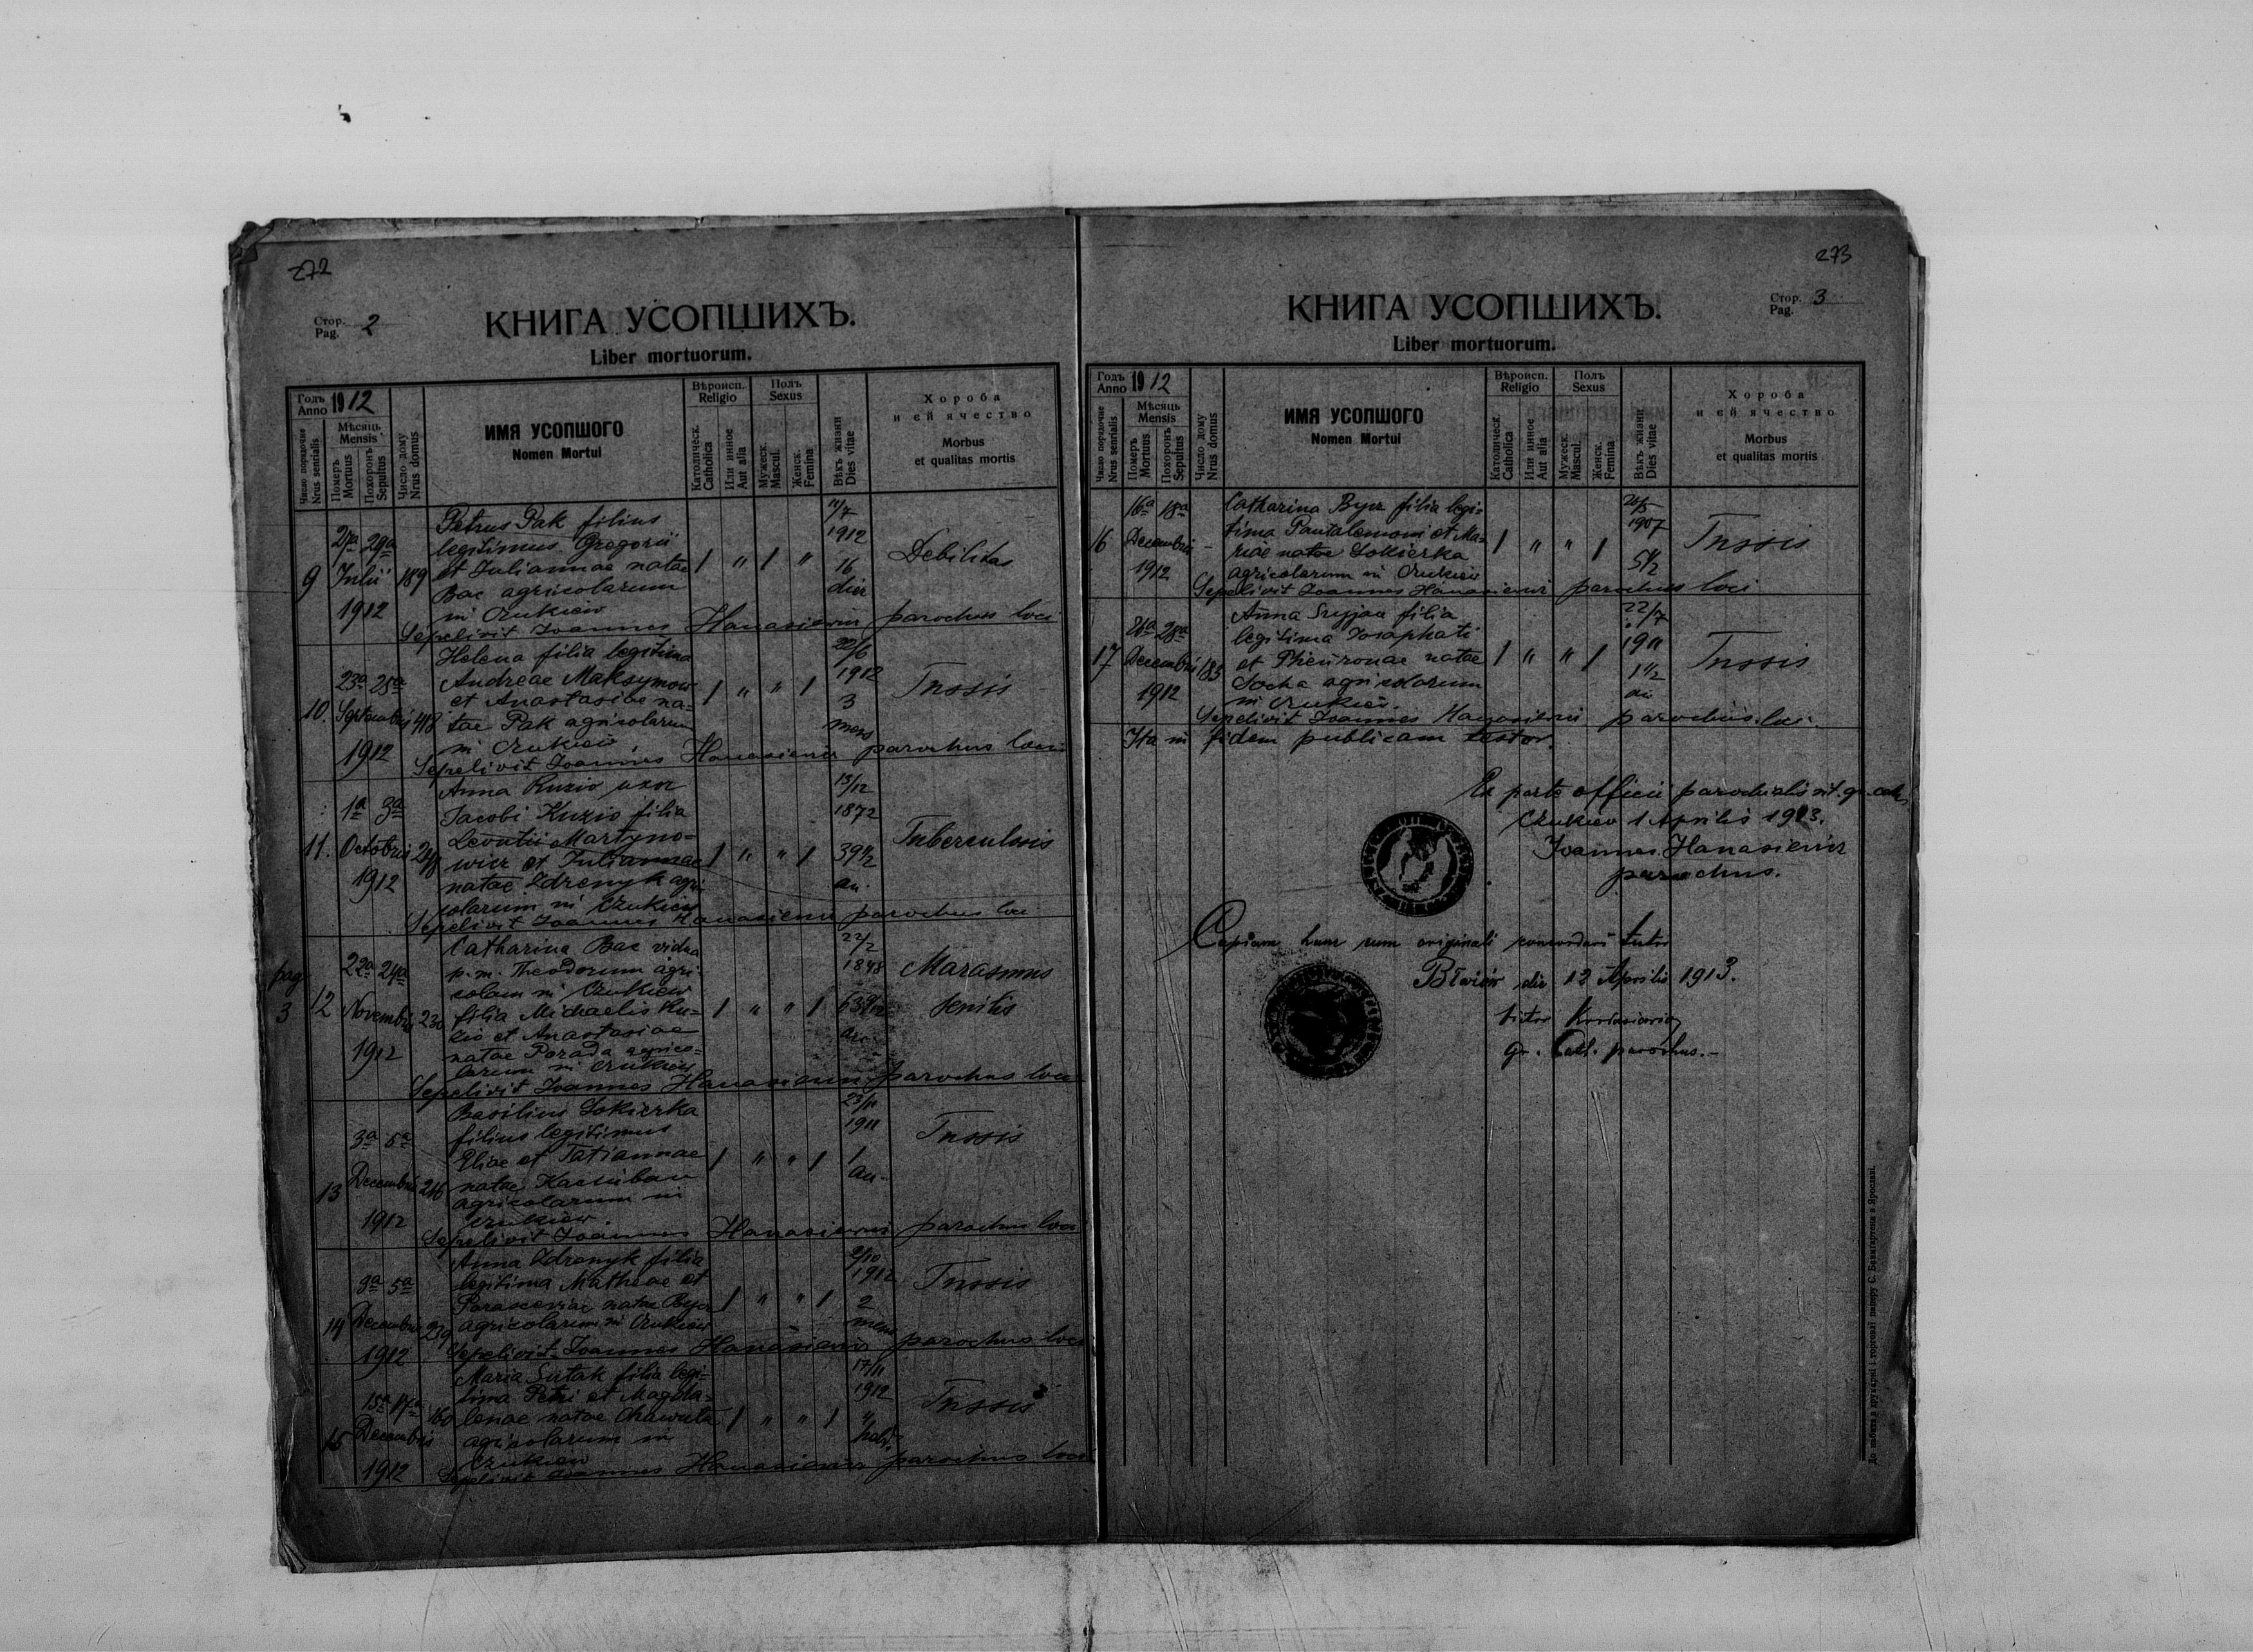 272
Стор. Pag. 2
КНИГА УСОПШИХЪ.
Liber mortuorum.
Годъ Anno 1912
Число порядочне Nrus serialis
Мѣсяць Mensis
Померъ Mortuus
Похоронъ Sepultus
Число дому Nrus domus
ИМЯ УСОПШОГО
Nomen Mortui
Вѣроисп. Religio
Католическ. Catholica
Или инное Aut alia
Полъ Sexus
Мужеск. Mascul.
Женск. Femina
Вѣкъ жизни Dies vitae
Хороба
и ей ячество
Morbus
et qualitas mortis
9 27a 29a Julii 1912 189
Petrus Pak filius
legitimus Gregorii
et Juliannae natae
Bac agricolarum
in Czukiew
1 " 1 "
11/7 1912 16 dier
Debilitas
Sepelivit Joannes Hanasiewicz parochus loci
10. 23a 25a Septembris 1912 418
Helena filia legitima
Andreae Maksymow
et Anastasiae na-
tae Pak agricolarum
in Czukiew,
1 " " 1
22/6 1912 3 mens
Tussis
Sepelivit Joannes Hanasiewicz parochus loci
11. 1a 3a Octobris 1912 248
Anna Kuzio uxor
Jacobi Kuzio filia
Leontii Martyno-
wicz et Juliannae
natae Zdrenyk agri-
colarum in Czukiew
1 " " 1
13/12 1872 39 1/2 an.
Tuberculosis
Sepelivit Joannes Hanasiewicz parochus loci
pag 3
12 22a 24a Novembris 1912 230
Catharina Bac vidua
p. m. Theodorum agri-
colam in Czukiew
filia Michaelis Ku-
zio et Anastasiae
natae Porada agrico-
larum in Czukiew
1 " " 1
22/2 1848
Marasmus
senilis
Sepelivit Joannes Hanasiewicz parochus loci
13 3a 5a Decembris 1912 246
Basilius Sokierka
filius legitimus
Eliae et Tatiannae
natae
agricolarum in
Czukiew.
1 " " 1
23/11 1911 1 an.
Tussis
Sepelivit Joannes Hanasiewicz parochus loci
14 3a 5a Decembris 1912 239
Anna Zdrenyk filia
legitima Matheae et
Parasceviae natae Bycz
agricolarum in Czukiew
1 " " 1
2/10 1912 2 mens
Tussis
Sepelivit Joannes Hanasiewicz parochus loci
15 15a 17a Decembris 1912 160
Maria Sutak filia legi-
tima Petri et Magda-
lenae natae
agricolarum in
Czukiew
1 " " 1
17/11 1912
Tussis
Sepelivit Joannes Hanasiewicz parochus loci
273
Стор. Pag. 3
КНИГА УСОПШИХЪ.
Liber mortuorum.
Годъ Anno 1912
Число порядочне Nrus serialis
Мѣсяць Mensis
Померъ Mortuus
Похоронъ Sepultus
Число дому Nrus domus
ИМЯ УСОПШОГО
Nomen Mortui
Вѣроисп. Religio
Католическ. Catholica
Или инное Aut alia
Полъ Sexus
Мужеск. Mascul.
Женск. Femina
Вѣкъ жизни Dies vitae
Хороба
и ей ячество
Morbus
et qualitas mortis
16 16a 18a Decembris 1912 -
Catharina Bycz filia legi-
tima Pantalemoni et Ma-
riae natae Sokierka
agricolarum in Czukiew
1 " " 1
1907 5 1/2
Tussis
Sepelivit Joannes Hanasiewicz parochus loci
17 26a 28a Decembris 1912 183
Anna Sryjan filia
legitima Josaphati
et natae
Socha agricolarum
in Czukiew.
1 " " 1
22/7 1911 1 1/2 an
Tussis
Sepelivit Joannes Hanasiewicz parochus loci.
Ita in fidem publicam testor.
Ex parte officii parochialis rit. gr. cath.
Czukiew 1 Aprilis 1913.
Joannes Hanasiewicz
parochus.
Copiam hanc cum originali concordari testor
die 12 Aprilis 1913.
gr. Cath. parochus.-